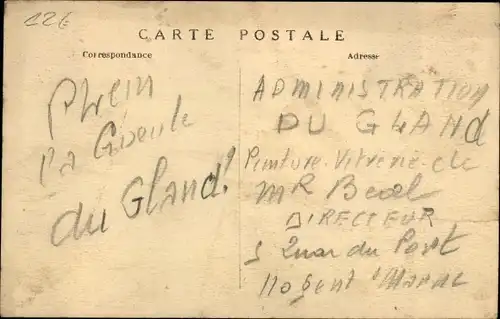 12€
CARTE POSTALE
Correspondance
Adresse
Plein
la Gueule
du Gland!
ADMINISTRATION
DU GLAND
Peinture-Vitrerie-de
MR Beal
DIRECTEUR
5 Quai du Port
Nogent s/Marne